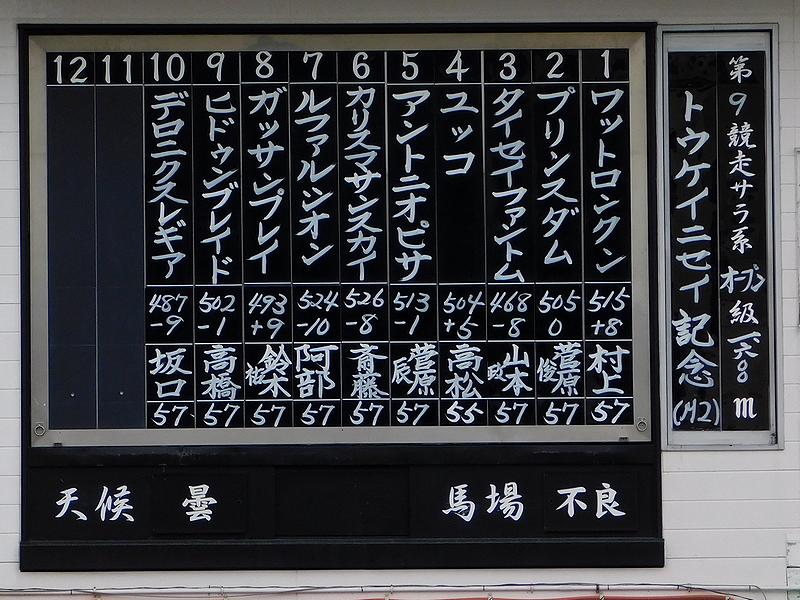 第9競走サラ系 オープン級 一六〇〇 m
トウケイニセイ記念 (M2)
1 ワットロンクン 515 +8 村上 57
2 プリンスダム 505 0 菅原俊 57
3 タイセイファントム 468 -8 山本政 57
4 ユッコ 504 +5 高松 55
5 アントニオピサ 513 -1 菅原辰 57
6 カリスマサンスカイ 526 -8 斎藤 57
7 ルファルシオン 524 -10 阿部 57
8 ガッサンプレイ 493 +9 鈴木祐 57
9 ヒドゥンブレイド 502 -1 高橋 57
10 デロニクスレギア 487 -9 坂口 57
11
12
天候 曇
馬場 不良